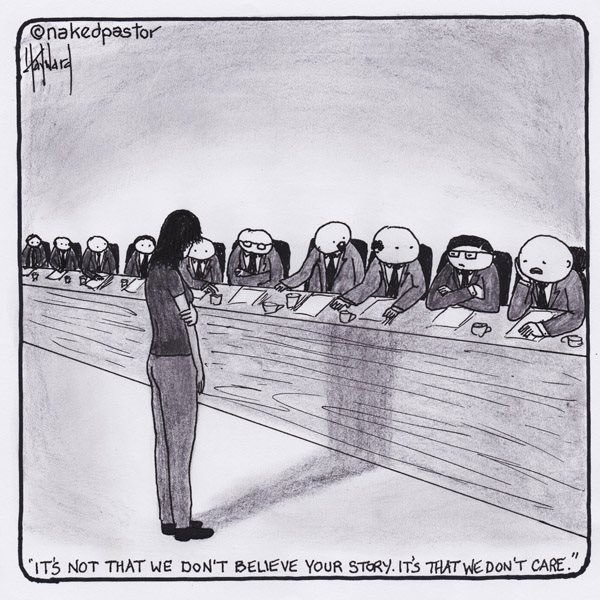 ©nakedpastor
Hayward
"IT'S NOT THAT WE DON'T BELIEVE YOUR STORY. IT'S THAT WE DON'T CARE."